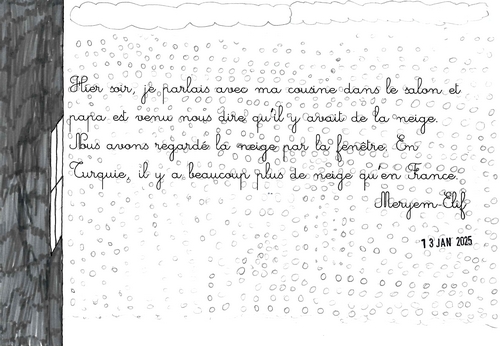 Hier soir, je parlais avec ma cousine dans le salon et
papa est venu nous dire qu'il y avait de la neige.
Nous avons regardé la neige par la fenêtre. En
Turquie, il y a beaucoup plus de neige qu'en France.
Meryem-Elif
13 JAN 2025